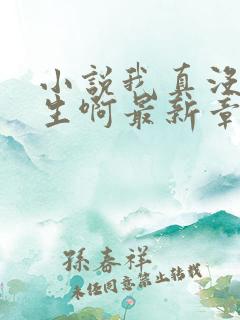 小説我真没
生啊最新章
孫春祥
未经同意禁止转载